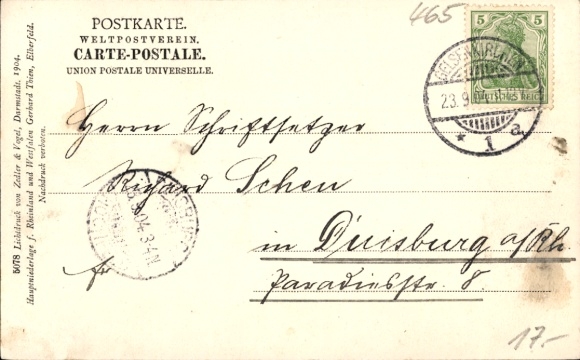 POSTKARTE.
WELTPOSTVEREIN.
CARTE-POSTALE.
UNION POSTALE UNIVERSELLE.
465
5 5
DEUTSCHES REICH
GELSENKIRCHEN
23.9.
* 1 a
Herrn Schriftsetzer
Richard Schen
in Duisburg a/Rh.
fr
Paradiesstr. 8.
17.-
5078 Lichtdruck von Zedler & Vogel, Darmstadt. 1904.
Hauptniederlage f. Rheinland und Westfalen Gerhard Thien, Elberfeld.
Nachdruck verboten.